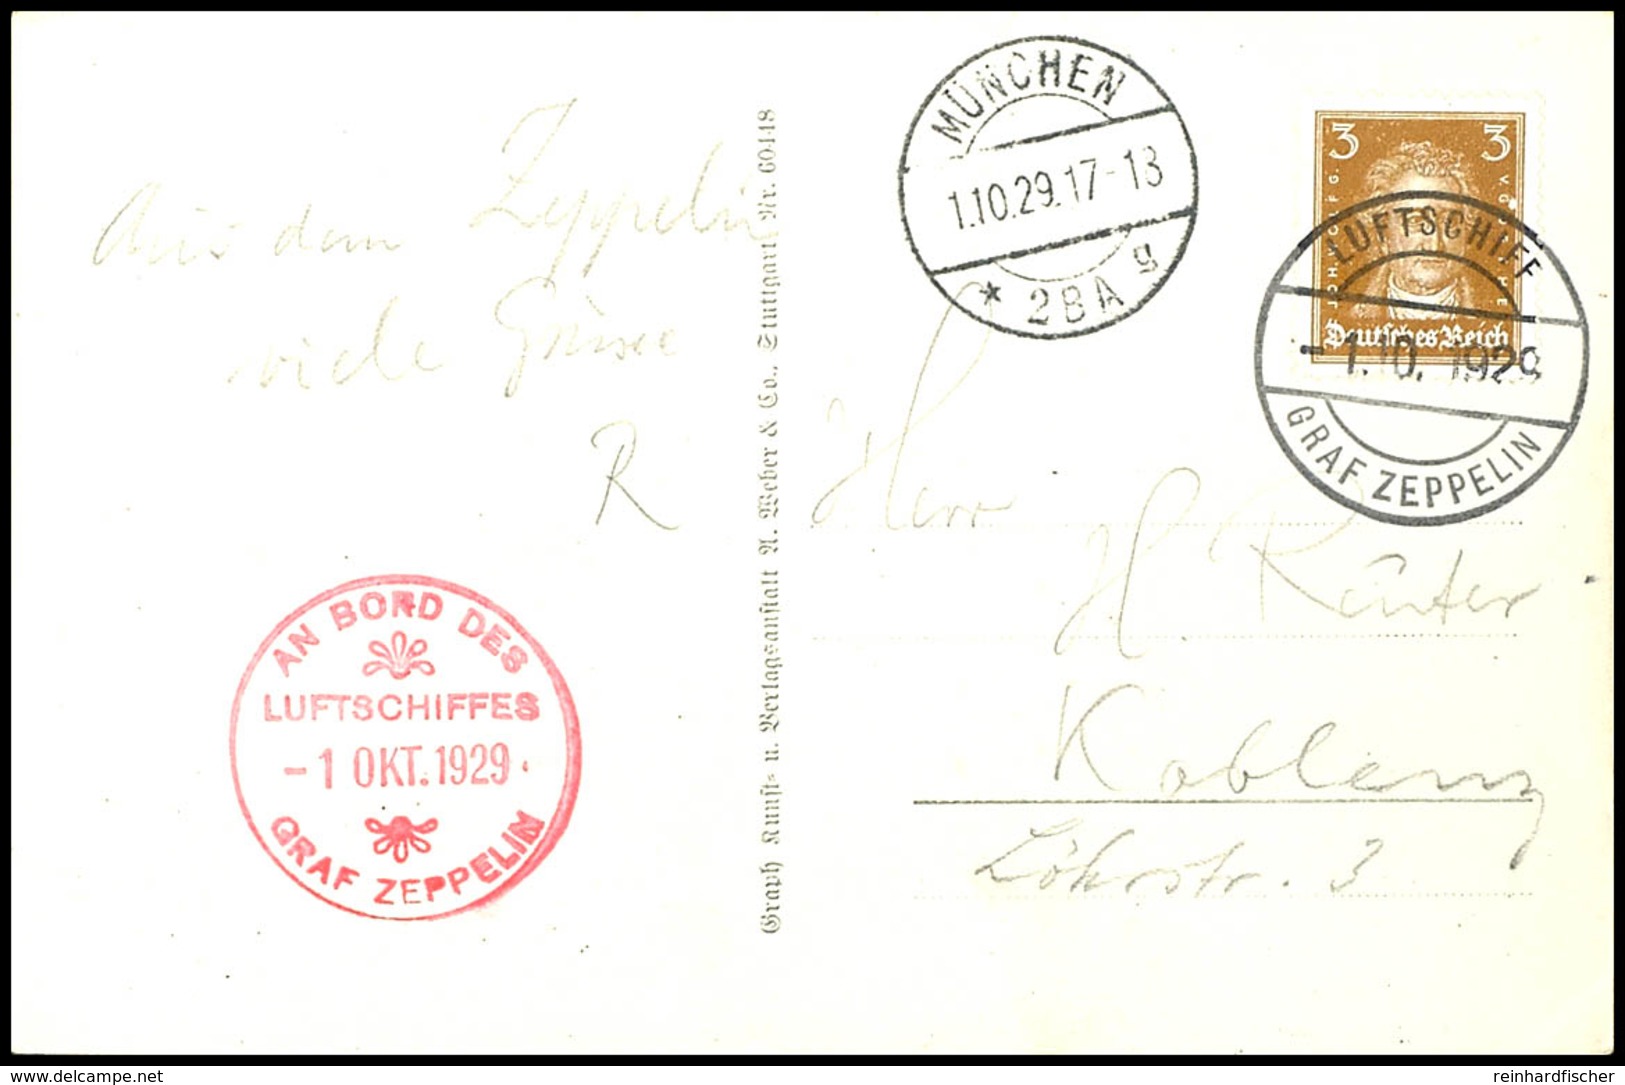 Aus dem Zeppelin
viele Grüsse
R
AN BORD DES
LUFTSCHIFFES
- 1 OKT. 1929
GRAF ZEPPELIN
Graph Kunst- u. Verlagsanstalt A. Weber & Co., Stuttgart Nr. 60448
MÜNCHEN
1.10.29.17-18
* 2BA g
3 3
JOH. WOLFG. V. GOETHE
Deutsches Reich
LUFTSCHIFF
- 1.10. 1929
GRAF ZEPPELIN
Herr
H Reuter
Koblenz
Löhrstr. 3
delcampe.net
reinhardfischer